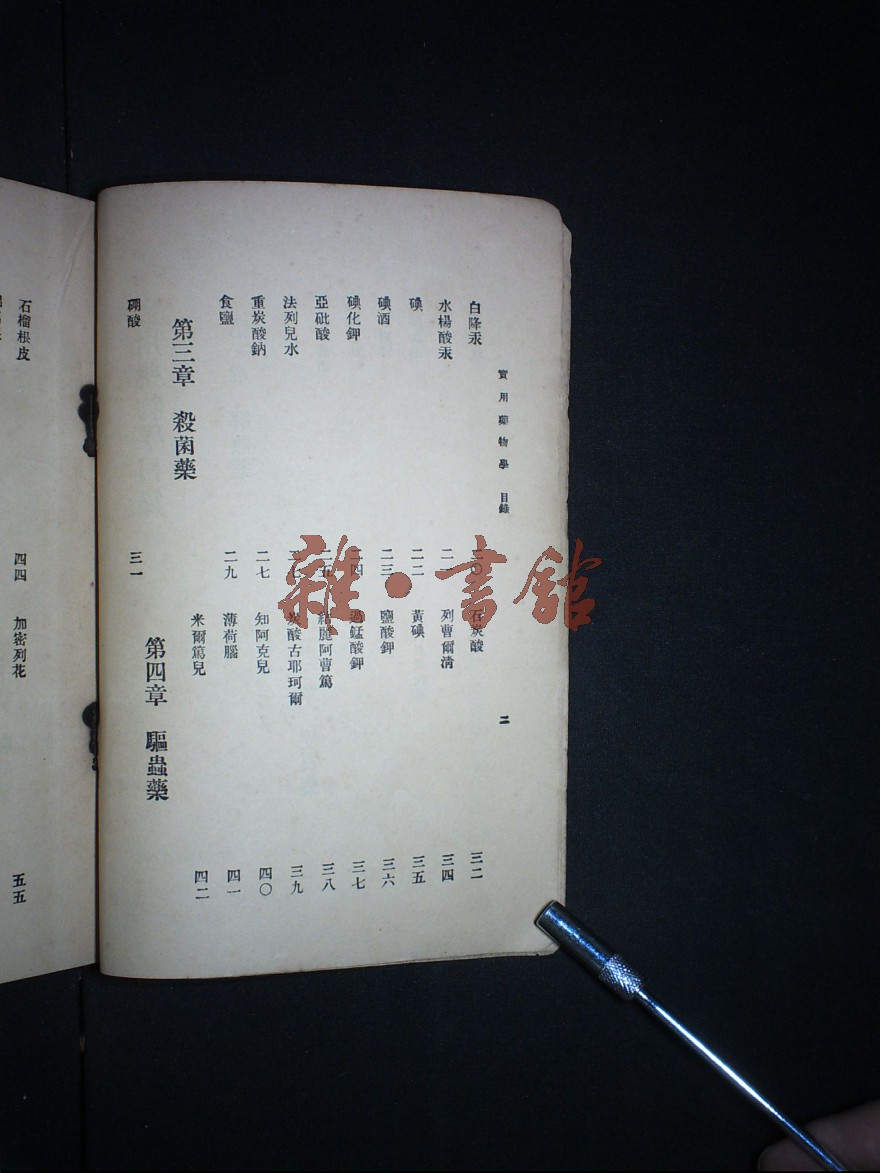 實用藥物學 目錄 二
白降汞 二〇
水楊酸汞
碘 二二
碘酒 二三
碘化鉀 二四
亞砒酸 二五
法列兒水
重炭酸鈉 二七
食鹽 二九
第三章 殺菌藥
硼酸 三一
石炭酸 三二
列曹爾清 三四
黃碘 三五
鹽酸鉀 三六
過錳酸鉀 三七
麗阿曹篤 三八
炭酸古耶珂爾 三九
知阿克兒 四〇
薄荷腦 四一
米爾篤兒 四二
第四章 驅蟲藥
石榴根皮 四四
加密列花 五五
雜·書館